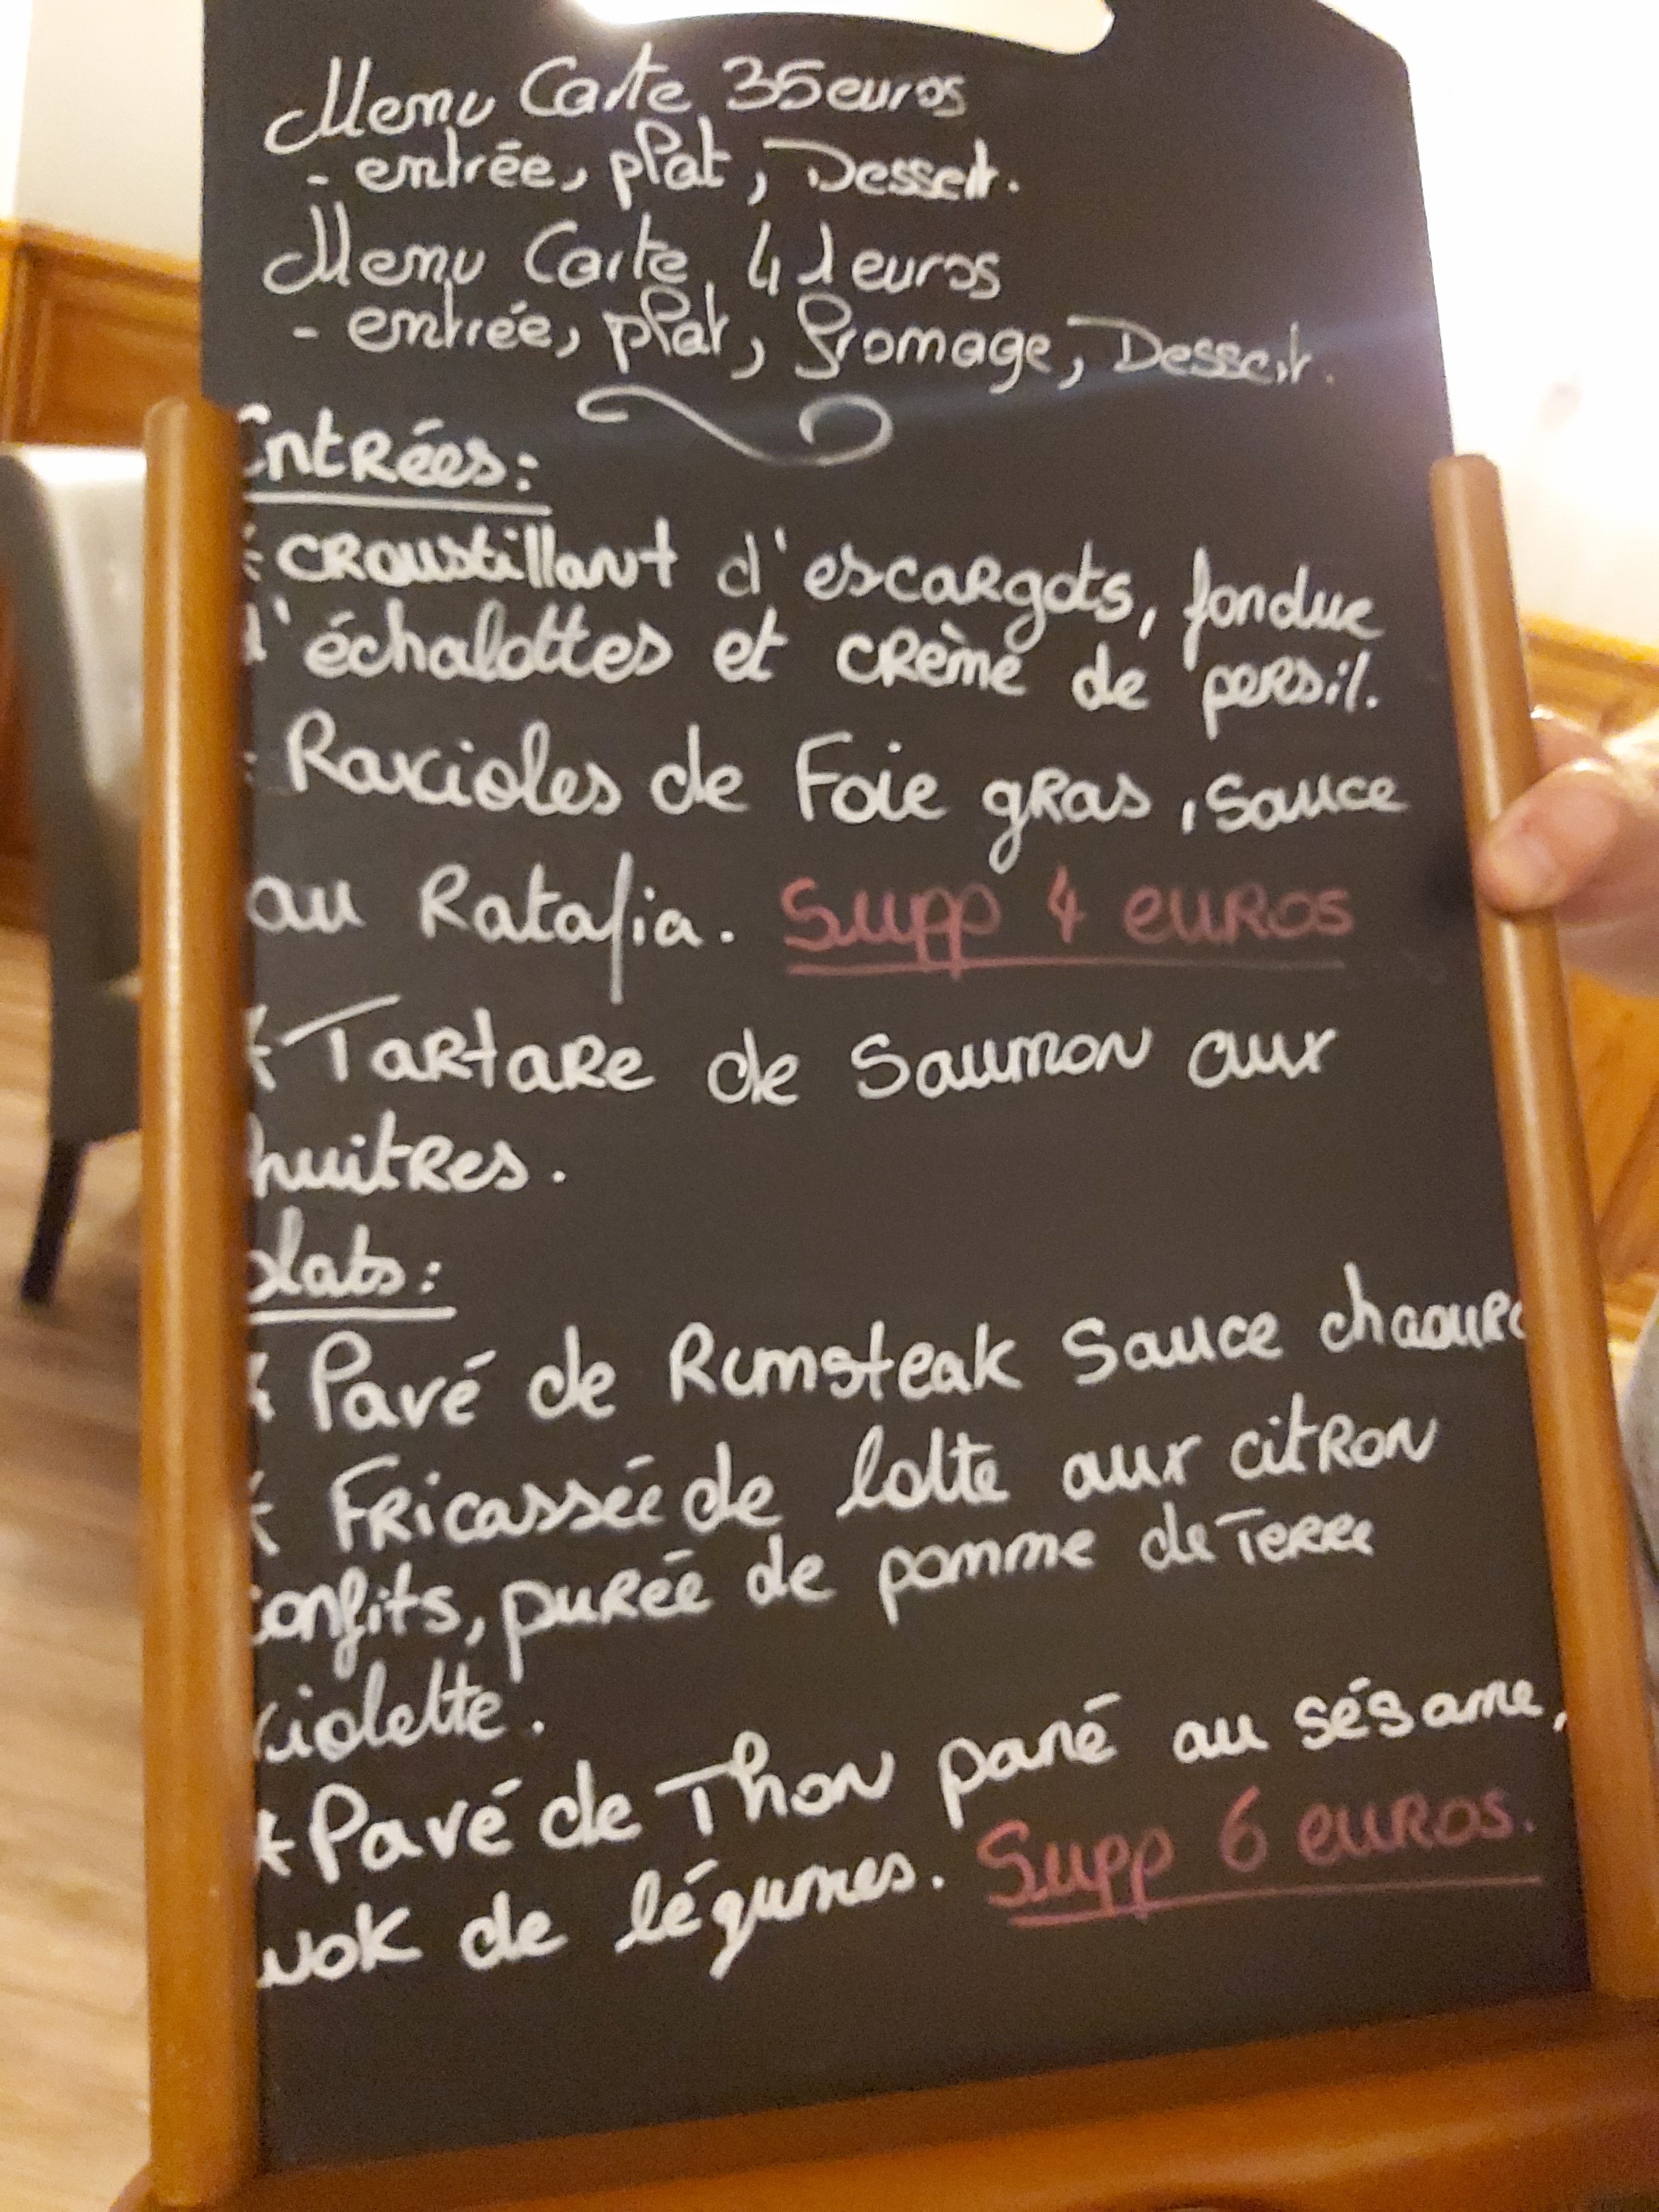 Menu Carte 35 euros
- entrée, plat, Dessert.
Menu Carte 41 euros
- entrée, plat, fromage, Dessert.
Entrées:
* croustillant d'escargots, fondue
d'échalottes et crème de persil.
* Ravioles de Foie gras, sauce
au Ratafia. Supp 4 euros
* Tartare de Saumon aux
huitres.
Plats:
* Pavé de Rumsteak Sauce chaource
* Fricassée de lotte aux citron
confits, purée de pomme de Terre
violette.
* Pavé de Thon pané au sésame,
wok de légumes. Supp 6 euros.